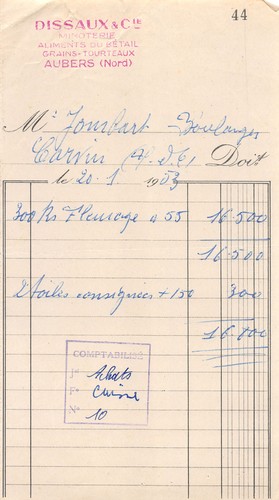 44
DISSAUX & CIE
MINOTERIE
ALIMENTS DU BÉTAIL
GRAINS-TOURTEAUX
AUBERS (Nord)
Mr Jombart Boulanger
Carvin (P.d.C) Doit
le 20.1 1953
300 Ks Fleurage a 55 16.500
16.500
2 toiles consignées + 150 300
16.800
COMPTABILISÉ
Jl Achats
Fo Caisse
No 10